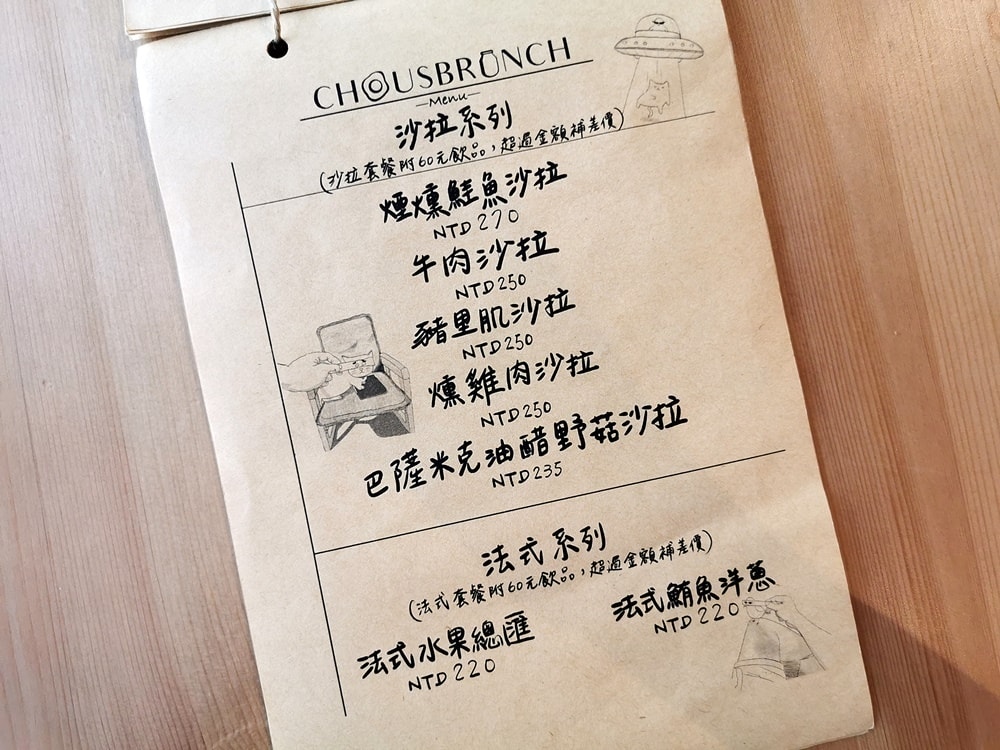 CHOUSBRUNCH
Menu
沙拉系列
(沙拉套餐附60元飲品，超過金額補差價)
煙燻鮭魚沙拉
NTD 270
牛肉沙拉
NTD 250
豬里肌沙拉
NTD 250
燻雞肉沙拉
NTD 250
巴薩米克油醋野菇沙拉
NTD 235
法式系列
(法式套餐附60元飲品，超過金額補差價)
法式鮪魚洋蔥
NTD 220
法式水果總匯
NTD 220